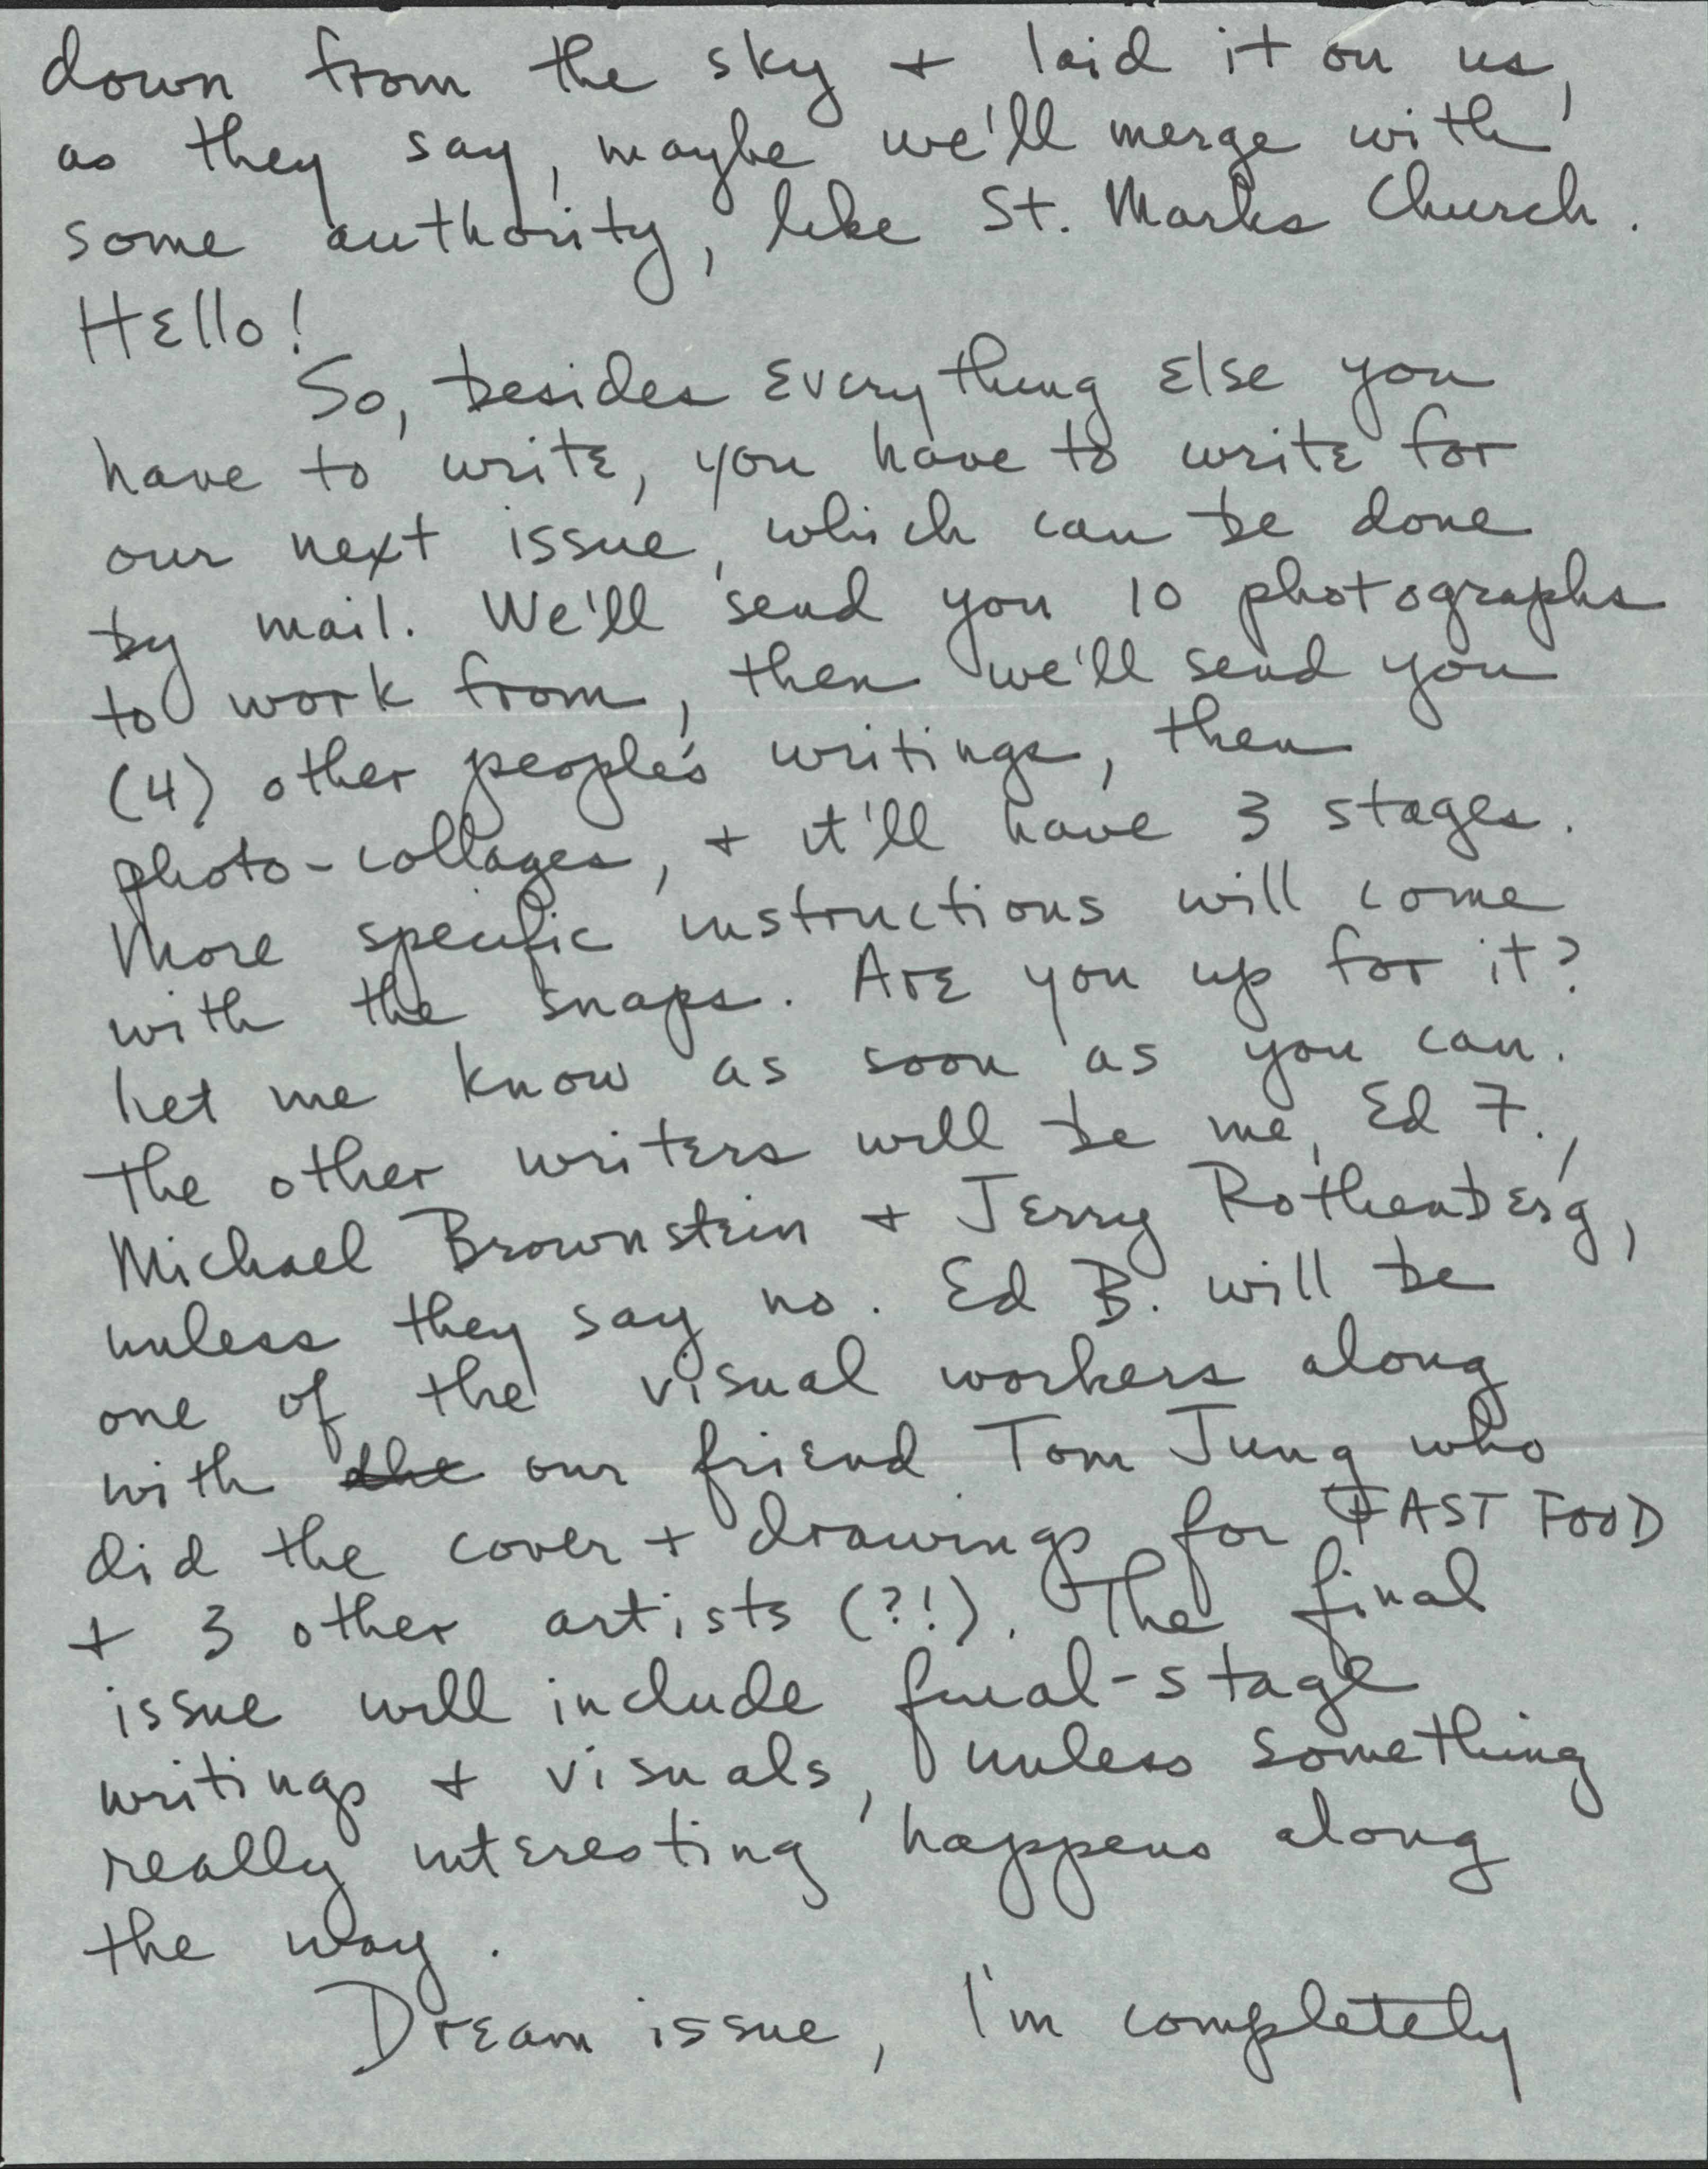 down from the sky + laid it on us,
as they say, maybe we'll merge with
some authority, like St. Marks Church.
Hello!
So, besides everything else you
have to write, you have to write for
our next issue, which can be done
by mail. We'll send you 10 photographs
to work from, then we'll send you
(4) other people's writings, then
photo-collages, + it'll have 3 stages.
More specific instructions will come
with the snaps. Are you up for it?
Let me know as soon as you can.
The other writers will be me, Ed F.,
Michael Brownstein + Jerry Rothenberg,
unless they say no. Ed B. will be
one of the visual workers along
with the our friend Tom Jung who
did the cover + drawings for FAST FOOD
+ 3 other artists (?!). The final
issue will include final-stage
writings + visuals, unless something
really interesting happens along
the way.
Dream issue, I'm completely